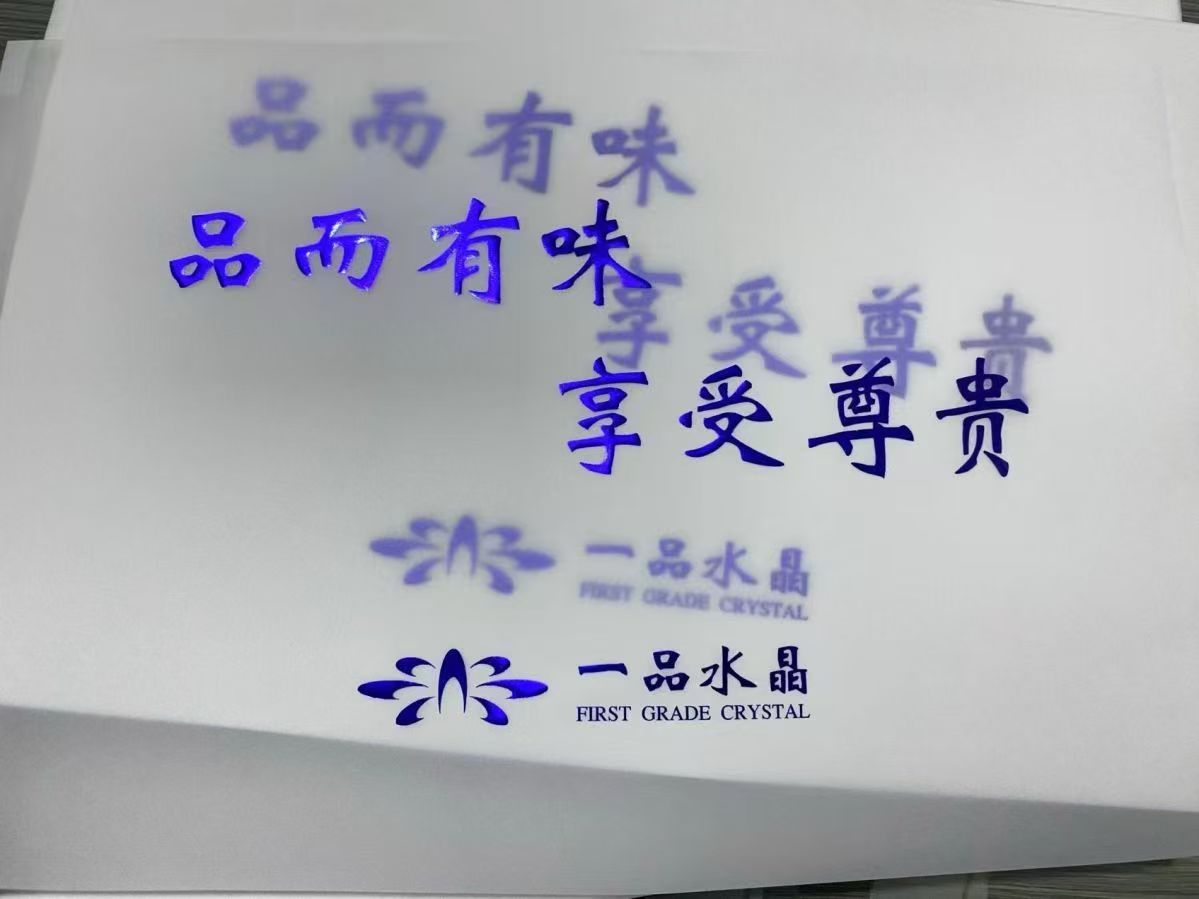 品而有味
品而有味
享受尊贵
享受尊贵
一品水晶
FIRST GRADE CRYSTAL
一品水晶
FIRST GRADE CRYSTAL